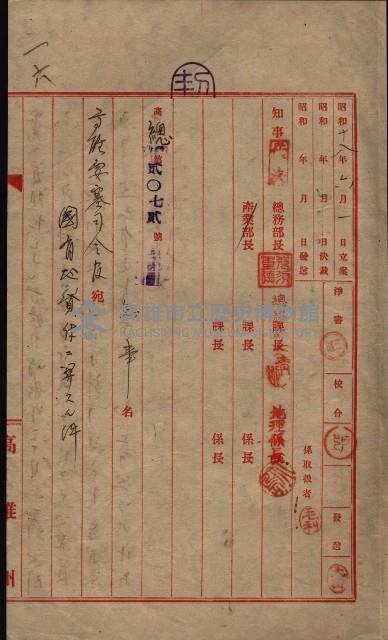 昭和十八年六月一日立案 淨書 校合 發送
昭和 年 月 日決裁
昭和 年 月 日發送 係取扱者 毛利
知事 總務部長 總務課長 地理係長
產業部長 課長 係長
課長 係長
高總第貳〇七貳號
知事名
高雄要塞司令官宛
國有地貸付ニ關スル件
一六
高雄州
高雄市立歷史博物館
KAOHSIUNG MUSEUM OF HISTORY